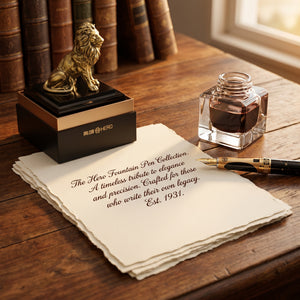 英雄 HERO
The Hero Fountain Pen Collection
A timeless tribute to elegance
and precision. Crafted for those
who write their own legacy.
Est. 1931.